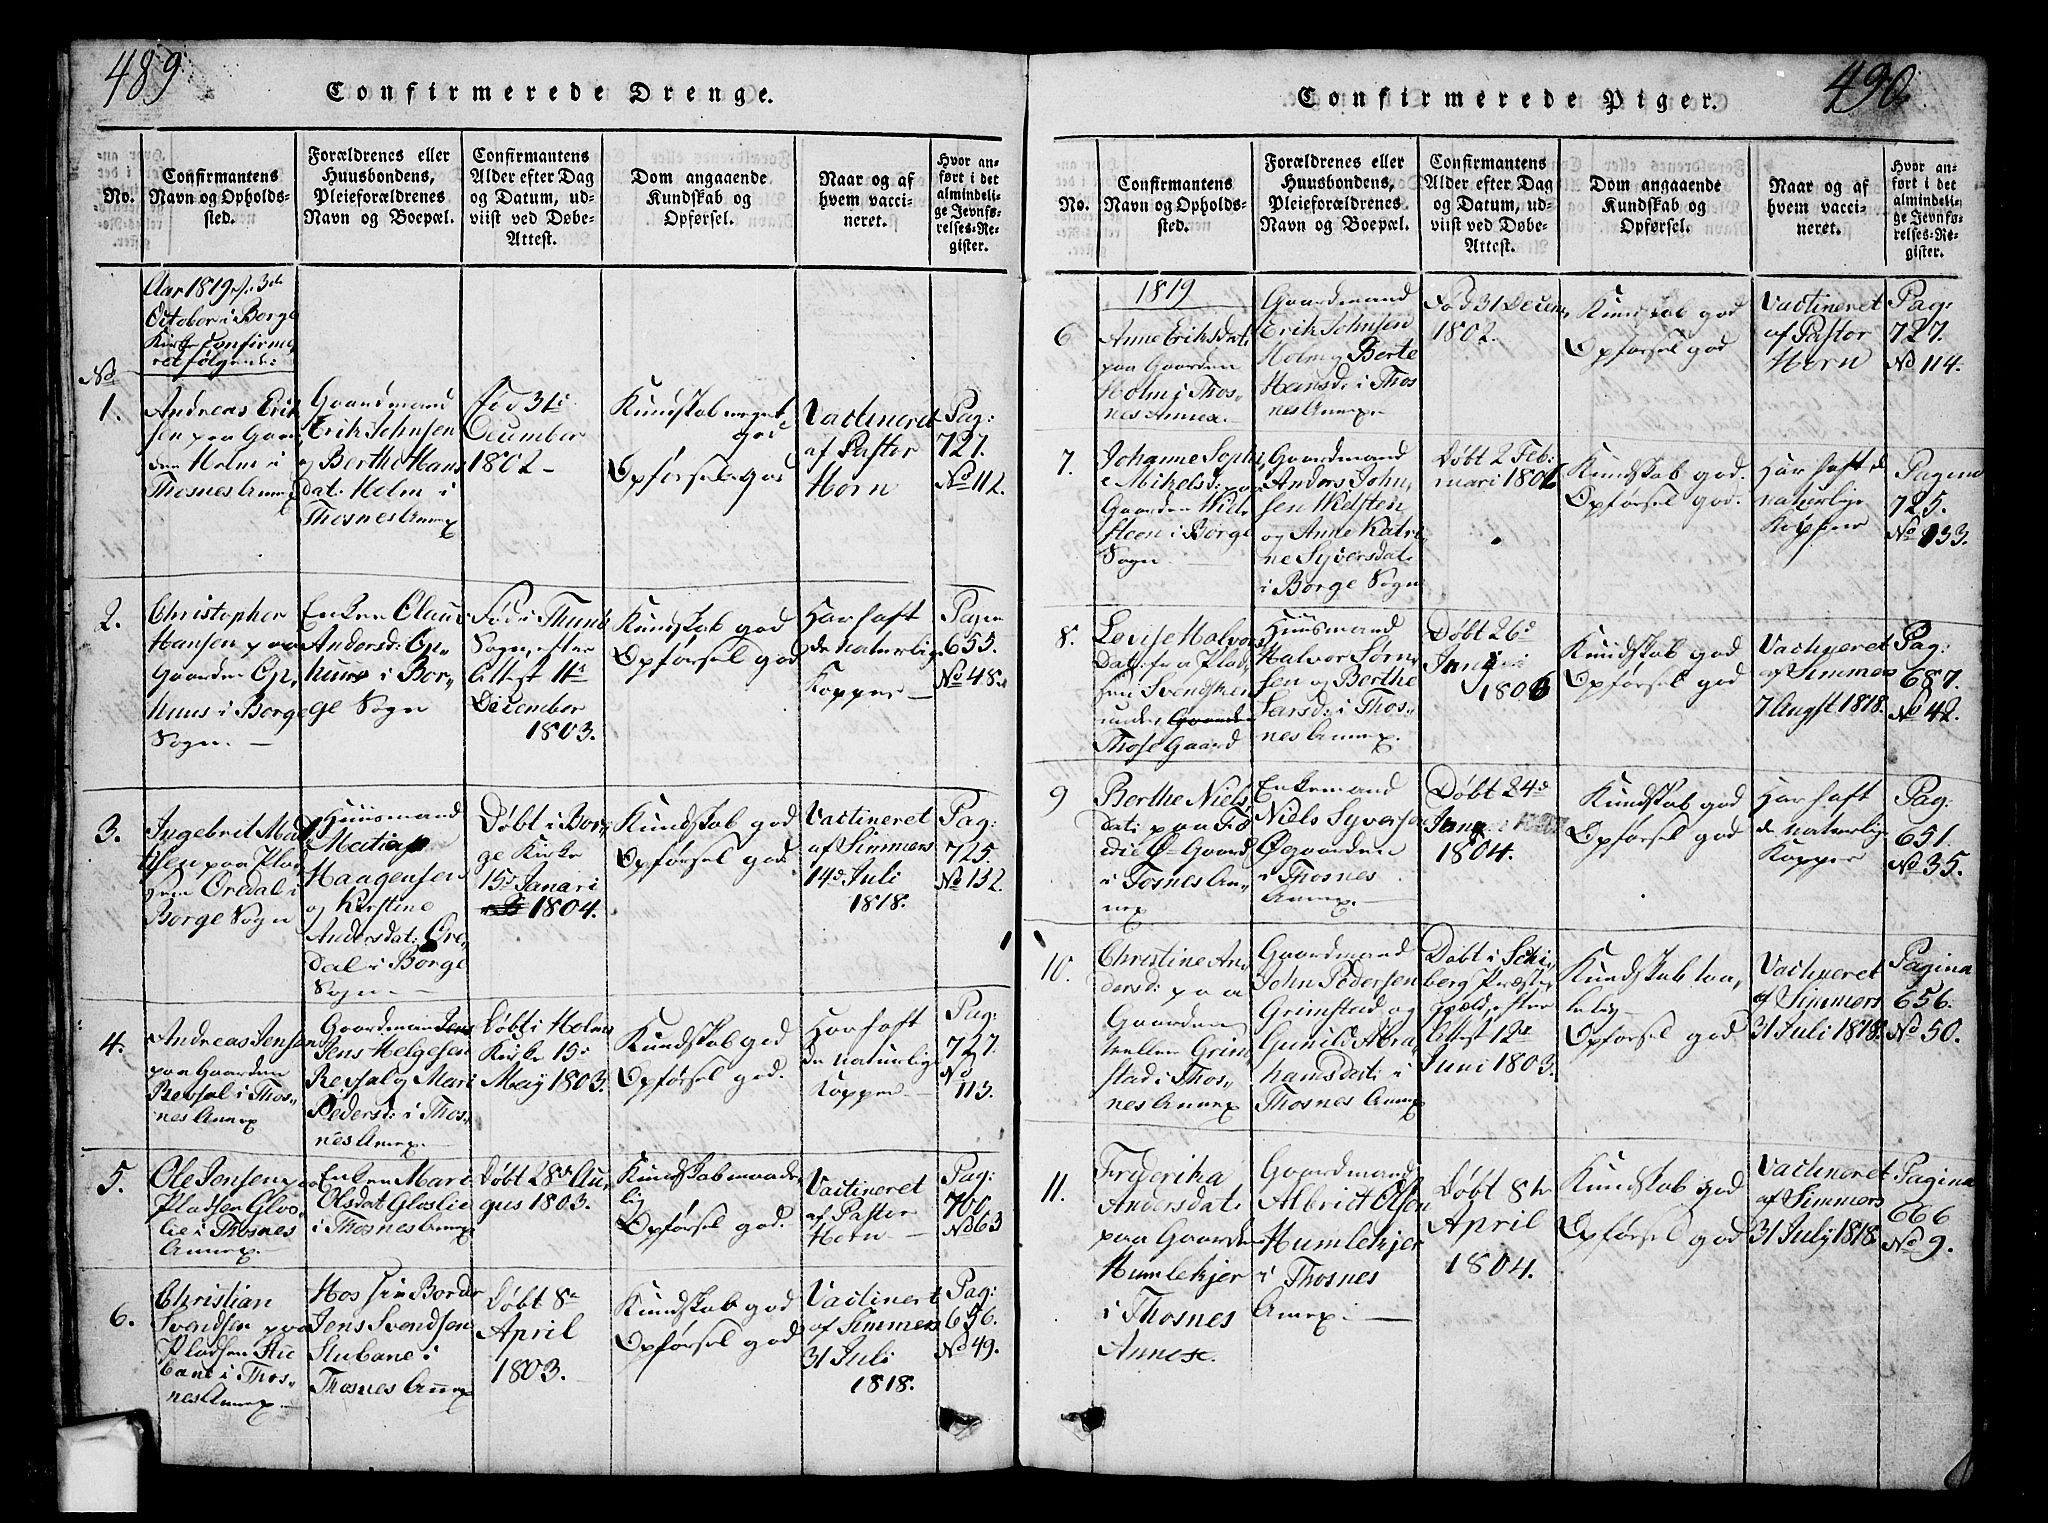 489
Confirmerede Drenge.
No.
Confirmantens
Navn og Opholds-
sted.
Forældrenes eller
Huusbondens,
Pleieforældrenes
Navn og Boepæl.
Confirmantens
Alder efter Dag
og Datum, ud-
viist ved Døbe-
Attest.
Dom angaaende
Kundskab og
Opførsel.
Naar og af
hvem vacci-
neret.
Hvor an-
ført i det
almindeli-
ge Jevnfø-
relses-Re-
gister.
Aar 1819 3de
October i Borge
Kirke Confirme,
ret følgende:
No
1.
Andreas Erik
sen paa Gaar,
den Holm i
Thosnes Annex
Gaardmand
Erik Johnsen
og Berthe Hans
dat: Holm i
Thosnes Annex
Fød 31te
December
1802 -
Kundskab meget
god
Opførsel god
Vactineret
af Pastor
Horn
Pag:
727.
No 112.
2.
Christopher
Hansen paa
Gaarden Op,
huus i Borge
Sogn. -
Enken Olaug
Anders d: Op,
huus i Bor,,
ge Sogn
Fød i Thune
Sogn, efter
Attest 11te
December
1803.
Kundskab god
Opførsel god
Har haft
de naturlige
Kopper -
Pagin
655.
No 48.
3.
Ingebrit Mat
sen paa Plad
sen Øredal i
Borge Sogn
Huusmand
Matias
Haagensen
og Kirstine
Andersdat: Øre,
dal i Borge
Sogn -
Døbt i Bor,
ge Kirke
15de Janari
1804.
Kundskab god
Opførsel god
Vactineret
af Simmers
14de Juli
1818.
Pag:
725.
No 132.
4.
Andreas Jensen
paa Gaarden
Revsal i Thos,,
nes Annex
Gaardmand Jens
Jens Helgesen
Revsal og Mari
Peders d: i Thos,,
nes Annex. -
Døbt i Holm
Kirke 15de
Maij 1803.
Kundskab god
Opførsel god.
Har haft
de naturlige
Kopper -
Pag:
727.
No
113.
5.
Ole Jensen paa
Pladsen Glos,
lie i Thosnes
Annex. -
Enken Mari
Olsdat: Gloslie
i Thosnes Annex
Døbt 28de Au,
gus 1803.
Kundskab maade,
lig
Opførsel god.
Vactineret
af Pastor
Horn -
Pag:
700.
No 63
6.
Christian
Svendsen paa
Pladsen Stu
bane i Thos,,
nes Annex. -
Hos sin Broder
Jens Svendsen
Stubane i
Thosnes Annex
Døbt 8de
April
1803.
Kundskab god
Opførsel god
Vactinert
af Simmers
31 Juli
1818.
Pag:
656.
No 49.
490
Confirmerede Piger.
No.
Confirmantens
Navn og Opholds-
sted.
Forældrenes eller
Huusbondens,
Pleieforældrenes
Navn og Boepæl.
Confirmantens
Alder efter Dag
og Datum, ud-
viist ved Døbe-
Attest.
Dom angaaende
Kundskab og
Opførsel.
Naar og af
hvem vacci-
neret.
Hvor an-
ført i det
almindeli-
ge Jevnfø-
relses-Re-
gister.
1819
6
Anne Eriksdati
paa Gaarden
Holm i Thos,,
nes Annex. -
Gaardmand
Erik Johnsen
Holm og Berte
Hansd: i Thos
nes Annex
Fød 31 Decem,
1802.
Kundskab god
Opførsel god
Vactineret
af Pastor
Horn
Pag:
727.
No 114.
7.
Johanne Sophi,
e Mikelsd: paa
Gaarden Wil,
steen i Borge
Sogn -
Gaardmand
Anders John,
sen Wilsten
og Anne Katri
ne Syversdat:
i Borge Sogn
Døbt 2 Feb:
ruari 1804
Kundskab god.
Opførsel god.
Har haft de
naturlige
Kopper
Pagina
725.
No 133.
8.
Lovise Halvors
Dat: fra Plad,
sen Svendsken
under Gaarden
Those Gaard
Huusmand
Halvor Sørn,
sen og Berthe
Larsd: i Thos,,
nes Annex.
Døbt 26de
Januari
1806
Kundskab god
Opførsel god
Vactineret
af Simmers
7 Augst 1818.
Pag:
687.
No 42.
9
Berthe Niels,
dat: paa
Ø-Gaard
i Tosnes An,
nex
Enkemand
Niels Syversen
Øgaarden
i Thosnes
Annex. -
Døbt 24de
Janu
1804.
Kundskab god
Opførsel god
Har haft
de naturlige
Kopper
Pag:
651.
No 35.
10.
Christine An,
dersd: paa
Gaarden
Mellem Grim,
stad i Thos,,
nes Annex
Gaardmand
John Pedersen
Grimstad og
Gunild Abra
hamsdat: i
Thosnes Annex
Døbt i Schi,
berg Præste,
gield, efter
Attest 12te
Juni 1803.
Kundskab taa,
lelig
Opførsel god
Vactineret
af Simmers
31 Juli 1818.
Pagina
656.
No 50.
11.
Frederika
Andersdat:
paa Gaarden
Humlekjer
i Thosnes
Annex.
Gaardmand
Albrict Olsen
Humlekjer
i Thosnes
Annex. -
Døbt 8de
April
1804.
Kundskab god
Opførsel god
Vactineret
af Simmers
31 Julij 1818.
Pagina
666
No 9.